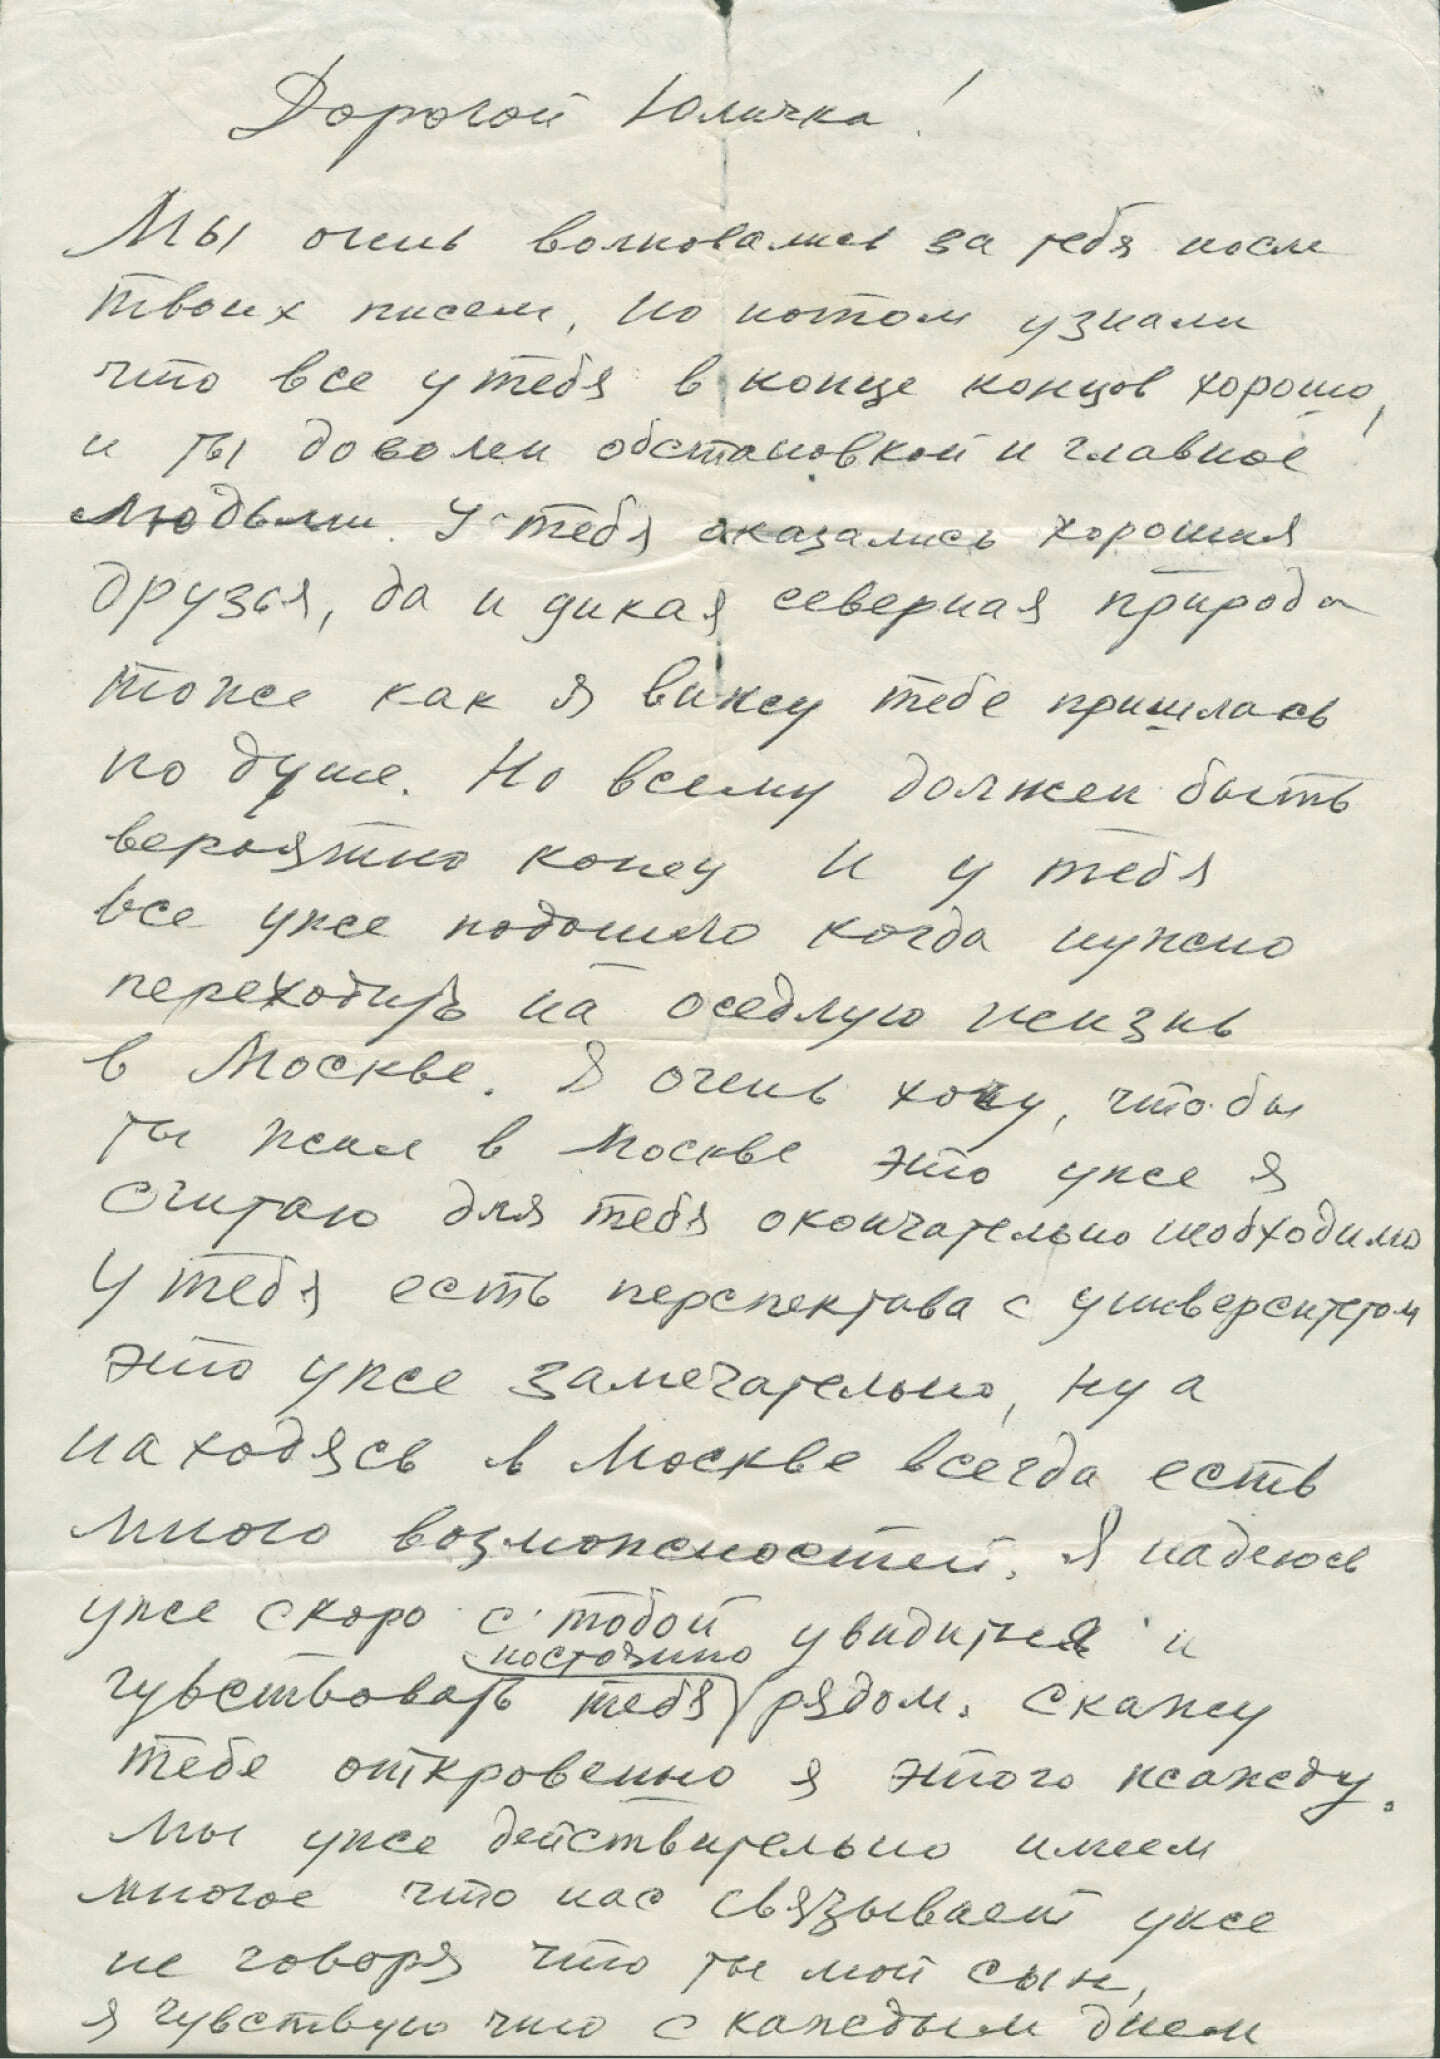 Дорогой Юличка!
Мы очень волновались за тебя после
твоих писем, но потом узнали
что все у тебя в конце концов хорошо,
и ты доволен обстановкой и главное
людьми. У тебя оказались хорошия
друзья, да и дикая северная природа
тоже как я вижу тебе пришлась
по душе. Но всему должен быть
вероятно конец и у тебя
все уже подошло когда нужно
переходить на оседлую жизнь
в Москве. Я очень хочу, чтобы
ты жил в Москве это уже я
считаю для тебя окончательно необходимо
У тебя есть перспектива с университетом
это уже замечательно, ну а
находясь в Москве всегда есть
много возможностей. Я надеюсь
уже скоро с тобой увидиться и
постоянно
чувствовать тебя рядом. Скажу
тебе откровенно я этого жажду.
Мы уже действительно имеем
многое что нас связывает уже
не говоря что ты мой сын,
я чувствую что с каждым днем